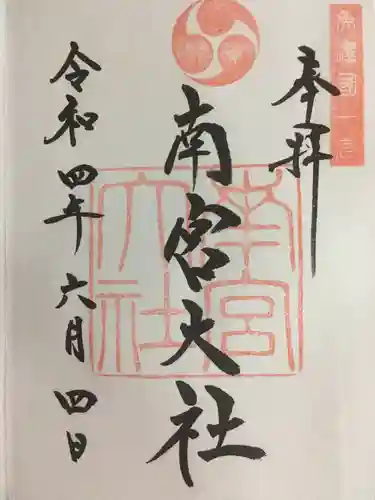 美濃國一宮
奉拝
南宮大社
南宮
大社
令和四年六月四日